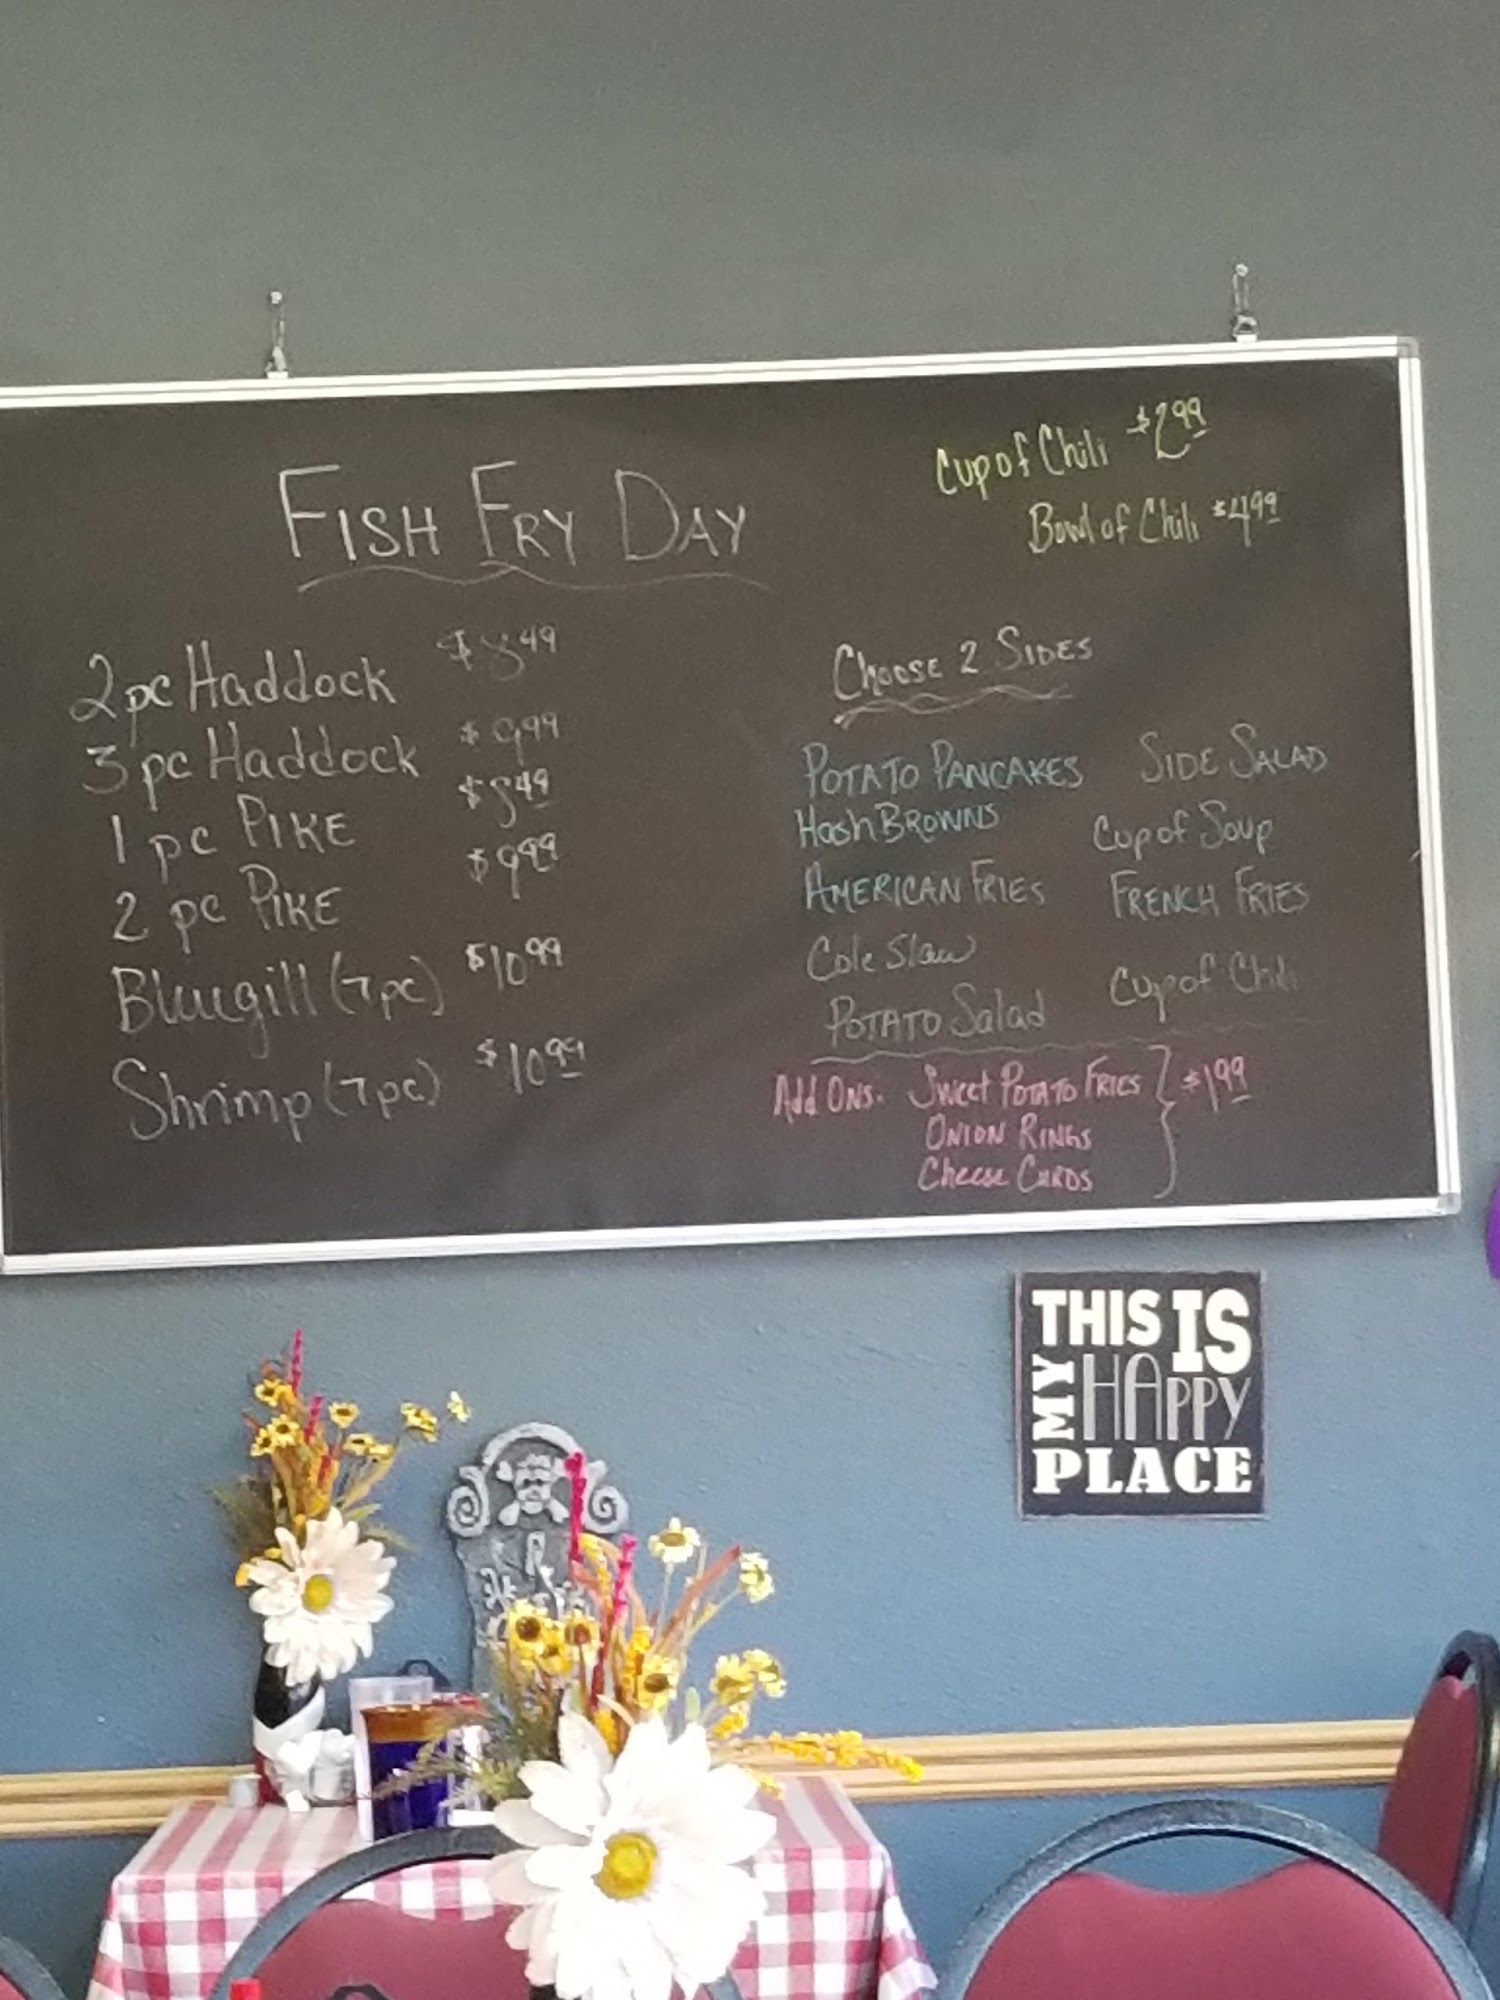 FISH FRY DAY
Cup of Chili $2.99
Bowl of Chili $4.99
2 pc Haddock $8.49
3 pc Haddock $9.99
1 pc PIKE $8.49
2 pc PIKE $9.99
Bluegill (7pc) $10.99
Shrimp (7pc) $10.99
CHOOSE 2 SIDES
POTATO PANCAKES SIDE SALAD
Hash BROWNS Cup of Soup
AMERICAN FRIES FRENCH FRIES
Cole Slaw Cup of Chili
POTATO Salad
Add ONS. SWEET POTATO FRIES } $1.99
ONION RINGS
Cheese CURDS
THIS IS
MY HAPPY
PLACE